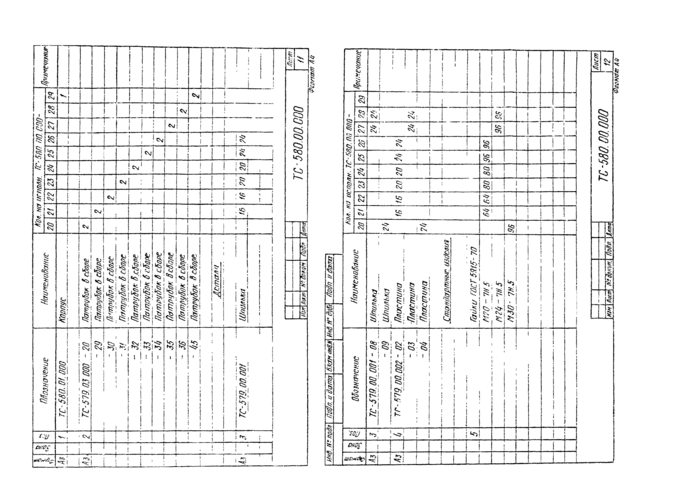 Формат Зона Поз. Обозначение Наименование Кол. на исполн. ТС-580.00.000- Примечание
20 21 22 23 24 25 26 27 28 29
А3 1 ТС-580.01.000 Корпус 1
А3 2 ТС-579.03.000 - 20 Патрубок в сборе 2
- 29 Патрубок в сборе 2
- 30 Патрубок в сборе 2
- 31 Патрубок в сборе 2
- 32 Патрубок в сборе 2
- 33 Патрубок в сборе 2
- 34 Патрубок в сборе 2
- 35 Патрубок в сборе 2
- 36 Патрубок в сборе 2
- 45 Патрубок в сборе 2
Детали
А3 3 ТС-579.00.001 Шпилька 16 16 20 20 24 24
Изм Лист № докум. Подп. Дата
ТС-580.00.000
Лист
11
Формат А4
Инв. № подл. Подп. и дата Взам. инв. № Инв. № дубл. Подп. и дата
Формат Зона Поз. Обозначение Наименование Кол. на исполн. ТС-580.00.000- Примечание
20 21 22 23 24 25 26 27 28 29
А3 3 ТС-579.00.001 - 08 Шпилька 24 24
- 09 Шпилька 24
А3 4 ТС-579.00.002 - 02 Пластина 16 16 20 20 24 24
- 03 Пластина 24 24
- 04 Пластина 24
Стандартные изделия
5 Гайки ГОСТ 5915-70
М20 - 7Н.5 64 64 80 80 96 96
М24 - 7Н.5 96 96
М30 - 7Н.5 96
Изм Лист № докум. Подп. Дата
ТС-580.00.000
Лист
12
Формат А4